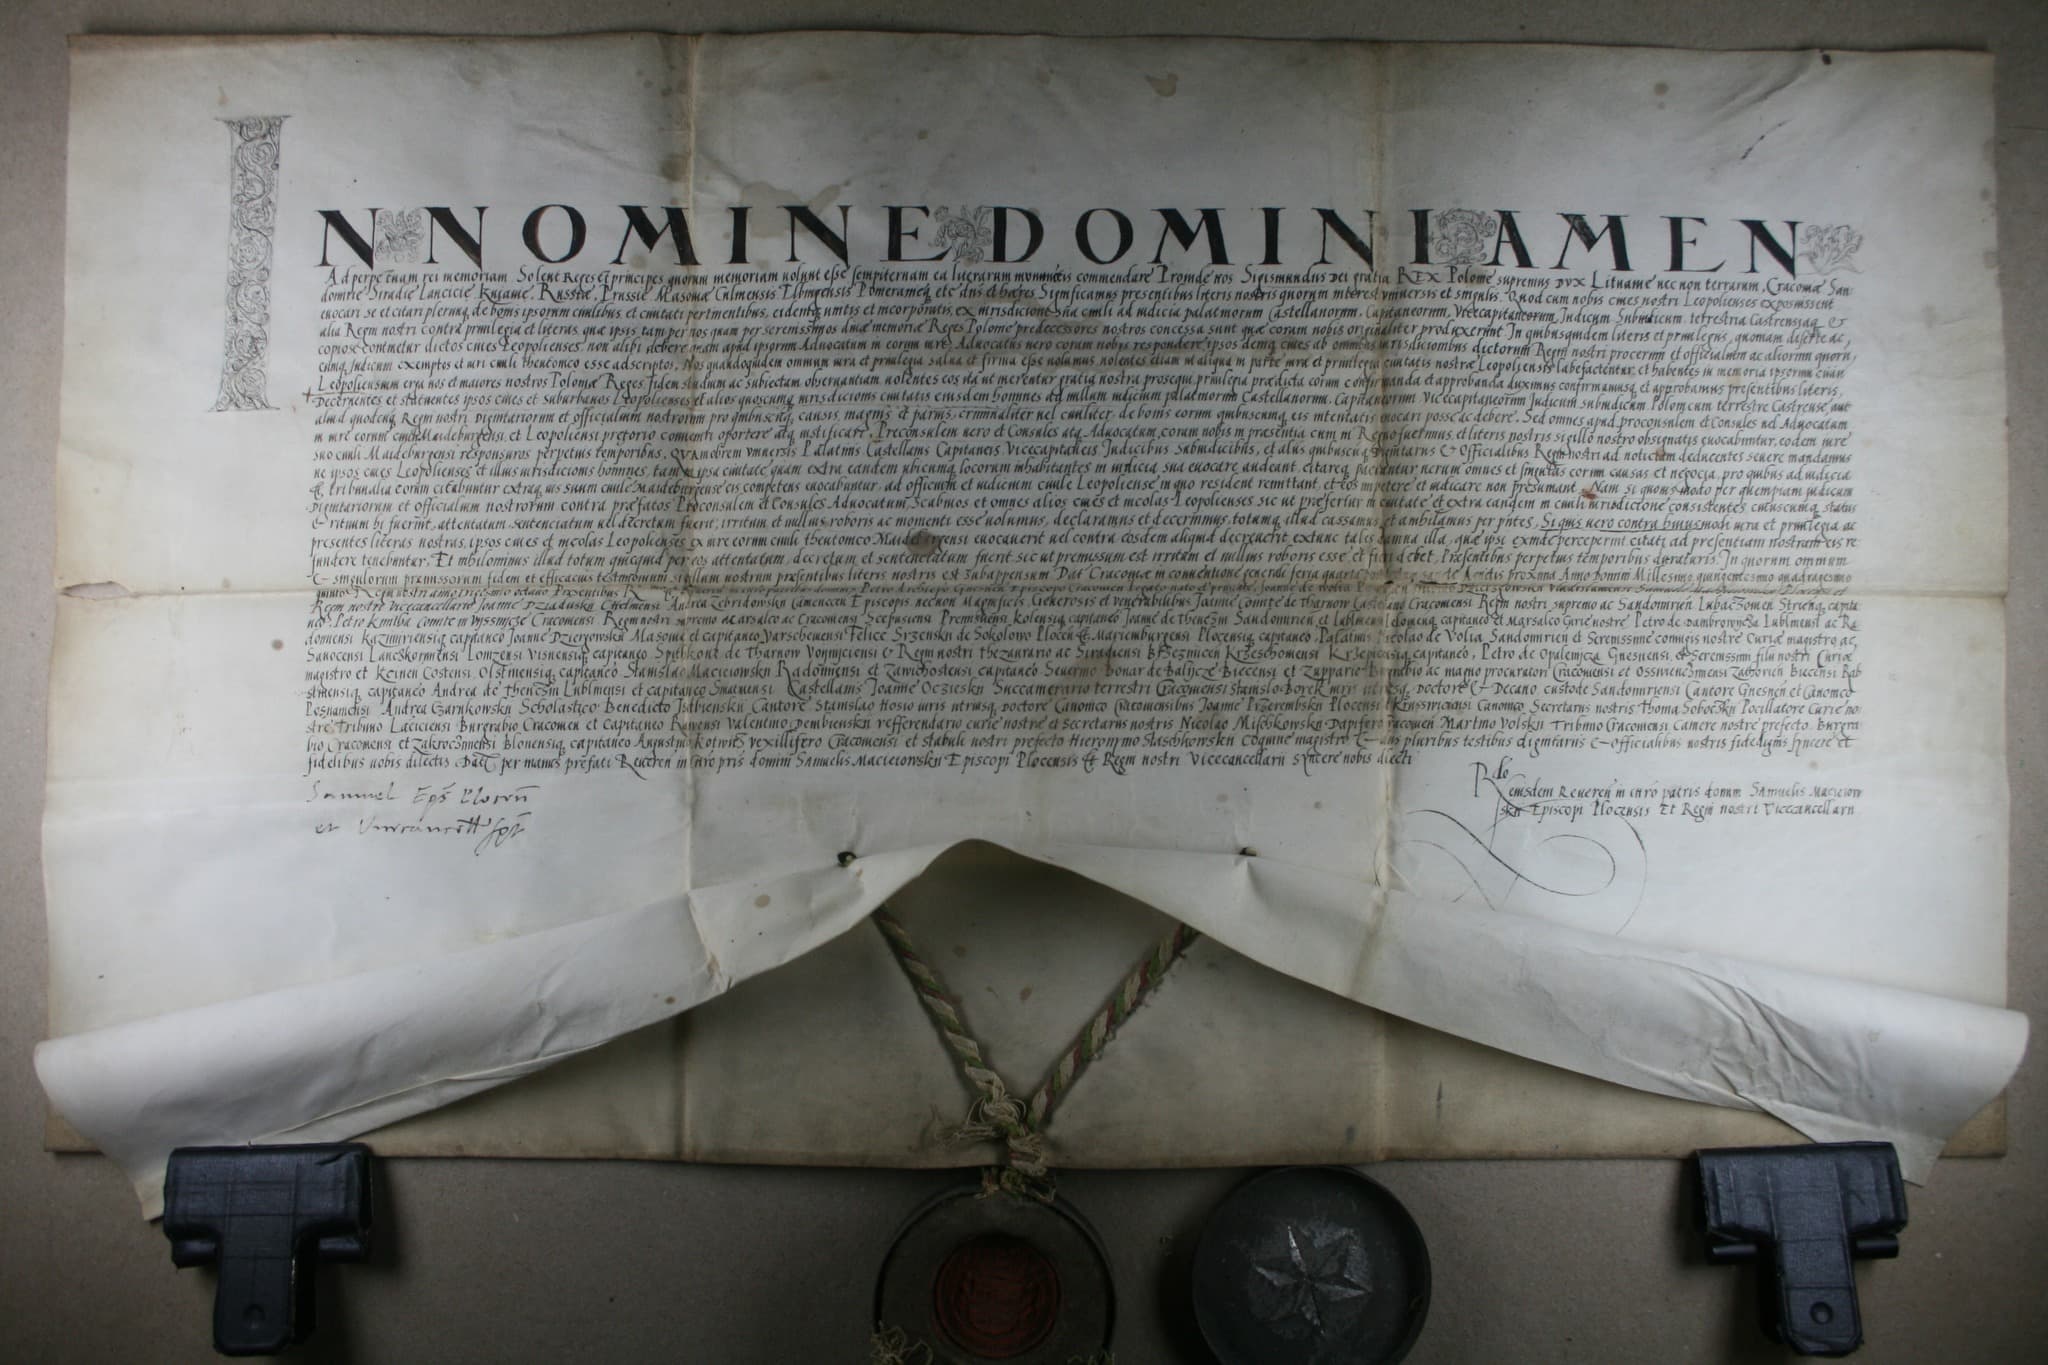 IN NOMINE DOMINI AMEN
Ad perpetuam rei memoriam. Solent Reges et principes quorum memoriam uolunt esse sempiternam ea literarum commendare Proinde nos Sigismundus Dei gratia REX Polonie supremus DVX Lituanie nec non terrarum, Cracoviæ San
domirie Siradie Lancicie Kuiauie, Russiæ, Prussie Masouiæ Culmensis Elbingensis Pomeranieq etc dns et hæres Significamus presentibus literis nostris quorum interest vniuersis et singulis. Quod cum nobis ciues nostri Leopolienses exposuissent
euocari se et citari plerunq de bonis ipsorum ciuilibus et ciuitati pertinentibus, ex iurisdictione sua ciuili ad iudicia palatinorum Castellanorum, Capitaneorum, Vicecapitaneorum Iudicum Subiudicum, terrestria Castrensiaq &
alia Regni nostri contra priuilegia et literas, quæ ipsis tam per nos quam per serenissimos diuæ memoriæ Reges Polonie predecessores nostros concessa sunt quæ coram nobis originaliter produxerunt In quibusquidem literis et priuilegiis, quoniam diserte ac
copiose continetur dictos ciues Leopolienses, non alibi debere quam apud ipsorum Aduocatum in eorum iure Aduocatus uero coram nobis respondere ipsos demq ciues ab omnibus iurisdictionibus dictorum Regni nostri procerum et officialium ac aliorum quorū
cunq Iudicum exemptos et iuri ciuili theutonico esse adscriptos, Nos quandoquidem omnium iura et priuilegia salua et firma esse uolumus nolentes etiam ut aliqua in parte iura et priuilegia ciuitatis nostræ Leopoliensis labefactentur, et habentes in memoria ipsorum ciuiū
Leopoliensium erga nos et maiores nostros Poloniæ Reges, fidem studium ac subiectam obseruantiam uolentes eos ita ut merentur gratia nostra prosequi, priuilegia prædicta eorum confirmanda et approbanda duximus confirmamusq et approbamus presentibus literis,
Decernentes et statuentes ipsos ciues et suburbanos Leopolienses et alios quoscunq iurisdictionis ciuitatis eiusdem homines ad nullum iudicium palatinorum Castellanorum, Capitaneorum Vicecapitaneorum Iudicum subiudicum, Polonicum terrestre Castrense, aut
aliud quodcunq Regni nostri Dignitariorum et officialium nostrorum pro quibuscunq causis, magnis et paruis, criminaliter uel ciuiliter de bonis eorum quibuscunq eis intentatis euocari posse ac debere. Sed omnes apud proconsulem et Consules uel Aduocatum
in iure eorum ciuili Maideburgensi, et Leopoliensi pretorio conueniri oportere atq iustificare, Preconsulem uero et Consules atq Aduocatum, coram nobis in præsentia cum in Regno fuerimus, et literis nostris sigillo nostro obsignatis euocabuntur, eodem iure
suo ciuili Maideburgensi responsuros perpetuis temporibus, QVAmobrem vniuersis Palatinis Castellanis Capitaneis, Vicecapitaneis Iudicibus Subiudicibus, et aliis quibuscunq Dignitariis & Officialibus Regni nostri ad notitiam deducentes seuere mandamus
ne ipsos ciues Leopolienses et illius iurisdictionis homines, tam in ipsa ciuitate quam extra eandem ubicunq locorum inhabitantes in iudicia sua euocare audeant, citareq faciant uerum omnes et singulas eorum causas et negocia, pro quibus ad iudicia
et tribunalia eorum citabuntur extraq ius suum ciuile Maideburgense eis competens euocabuntur, ad officium et iudicium ciuile Leopoliense in quo resident remittant, et eos impetere et iudicare non presumant. Nam si quouis modo per quempiam iudicum
Dignitariorum et officialium nostrorum contra præfatos Proconsulem et Consules Aduocatum, Scabinos et omnes alios ciues et incolas Leopolienses sic ut præfertur in ciuitate et extra eandem in ciuili iurisdictione consistentes cuiuscunq status
& ritus ubi fuerint, attentatum, sentenciatum uel decretum fuerit, irritum et nullius roboris ac momenti esse uolumus, declaramus et decernimus, totumq illud cassamus et annihilamus per pntes, Si quis uero contra huiusmodi iura et priuilegia ac
presentes literas nostras, ipsos ciues et incolas Leopolienses ex iure eorum ciuili theutonico Maideburgensi euocauerit uel contra eosdem aliquid decreuerit extunc talis damna illa, quæ ipsi exinde perceperint citati, ad presentiam nostram eis re
fundere tenebuntur. Et nihilominus illud totum quicquid per eos attentatum, decretum et sentenciatum fuerit sic ut premissum est irritum et nullius roboris esse et fieri debet, Presentibus perpetuis temporibus duraturis. In quorum omnium
& singulorum premissorum fidem et efficacius testimonium, sigillum nostrum præsentibus literis nostris est subappensum Dat Cracouiæ in conuentione generali feria quarta Anno Domini Millesimo quingentesimo quadragesimo
quinto Regni nostri anno tricesimo octauo Presentibus
Regni nostri Vicecancellario Ioanne Dziaduskij Chelmensi Andrea Zebridowskij Camenecen Episcopis necnon Magnificis, Generosis et venerabilibus Ioanne Comite de Tharnow Castellano Cracouiensi Regni nostri supremo ac Sandomirien
neo, Petro Kmitha Comite in Vyssnicze Cracouiensi Regni nostri supremo Marsalco ac Cracouiensi Scepusiensi Premisliensi Kolensiq capitaneo Ioanne de Thenczin Sandomirien et Lublinensi capitaneo et Marsalco Curie nostre, Petro de Dambrownicza Lublinensi ac Ra
domiensi Kazimiriensiq capitaneo Ioanne Dzierzgowskij Masouie et capitaneo Varscheuiensi Felice Srzenskij de Sokolowo Plocen et Mariemburgensi Plocensiq capitaneo, Palatinis Nicolao de Volia, Sandomirien et Serenissime coniugis nostre Curiæ magistro ac,
Sanocensi Lanczkorunensi Lomzensi Visnensiq capitaneo Spithkone de Tharnow Voynyciensi & Regni nostri thezaurario ac Siradiensi Krzepiciensiq capitaneo, Petro de Opalenycza Gnesnensi, & Serenissimi filii nostri Curiæ
magistro et capitaneo Stanislao Macieiowskij Radomiensi et Zawichostensi capitaneo Seuerino Bonar de Balijcze Biecensi et Zuppario Burgrabio ac magno procuratori Cracouiensi et Osswiencimensi Zathorien Biecensi Rab
stinensiq capitaneo Andrea de Thenczin Lublinensi et capitaneo Castellanis Ioanne Oczieskij Succamerario terrestri Cracouiensi Stanislao Borek iuris utriusq Doctore & Decano custode Sandomiriensi Cantore Gnesnen et Canonico
Posnaniensi Andrea Czarnkowskij Scholastico Benedicto Izdbienskij Cantore Stanislao Hosio iuris utriusq doctore Canonico Cracouiensibus Ioanne Przerembskij Plocensi Canonico Secretariis nostris Thoma Soboczkij Pocillatore Curie no
stre Tribuno Lanciciensi Burgrabio Cracouien et Capitaneo Rawensi Valentino Dembienskij refferendario curie nostre et Secretariis nostris Nicolao Mischkowskij Dapifero Martino Volskij Tribuno Cracouiensi Camere nostre prefecto, Burgra
bio Cracouiensi et Zakroczimensi Blonensiq capitaneo Augustino Kotwicz vexillifero Cracouiensi et stabuli nostri prefecto Hieronymo Staschkowskij Coquine magistro & aliis pluribus testibus dignitariis & Officialibus nostris fidedignis syncere et
fidelibus nobis dilectis Dat per manus prefati Reueren in chro pris domini Samuelis Macieiowskij Episcopi Plocensis et Regni nostri Vicecancellarii syncere nobis dilecti
Samuel Eps Plocen
et Vicecancell spt
Rlo
eiusdem Reueren in chro patris domini Samuelis Macieiow
skij Episcopi Plocensis Et Regni nostri Vicecancellarii